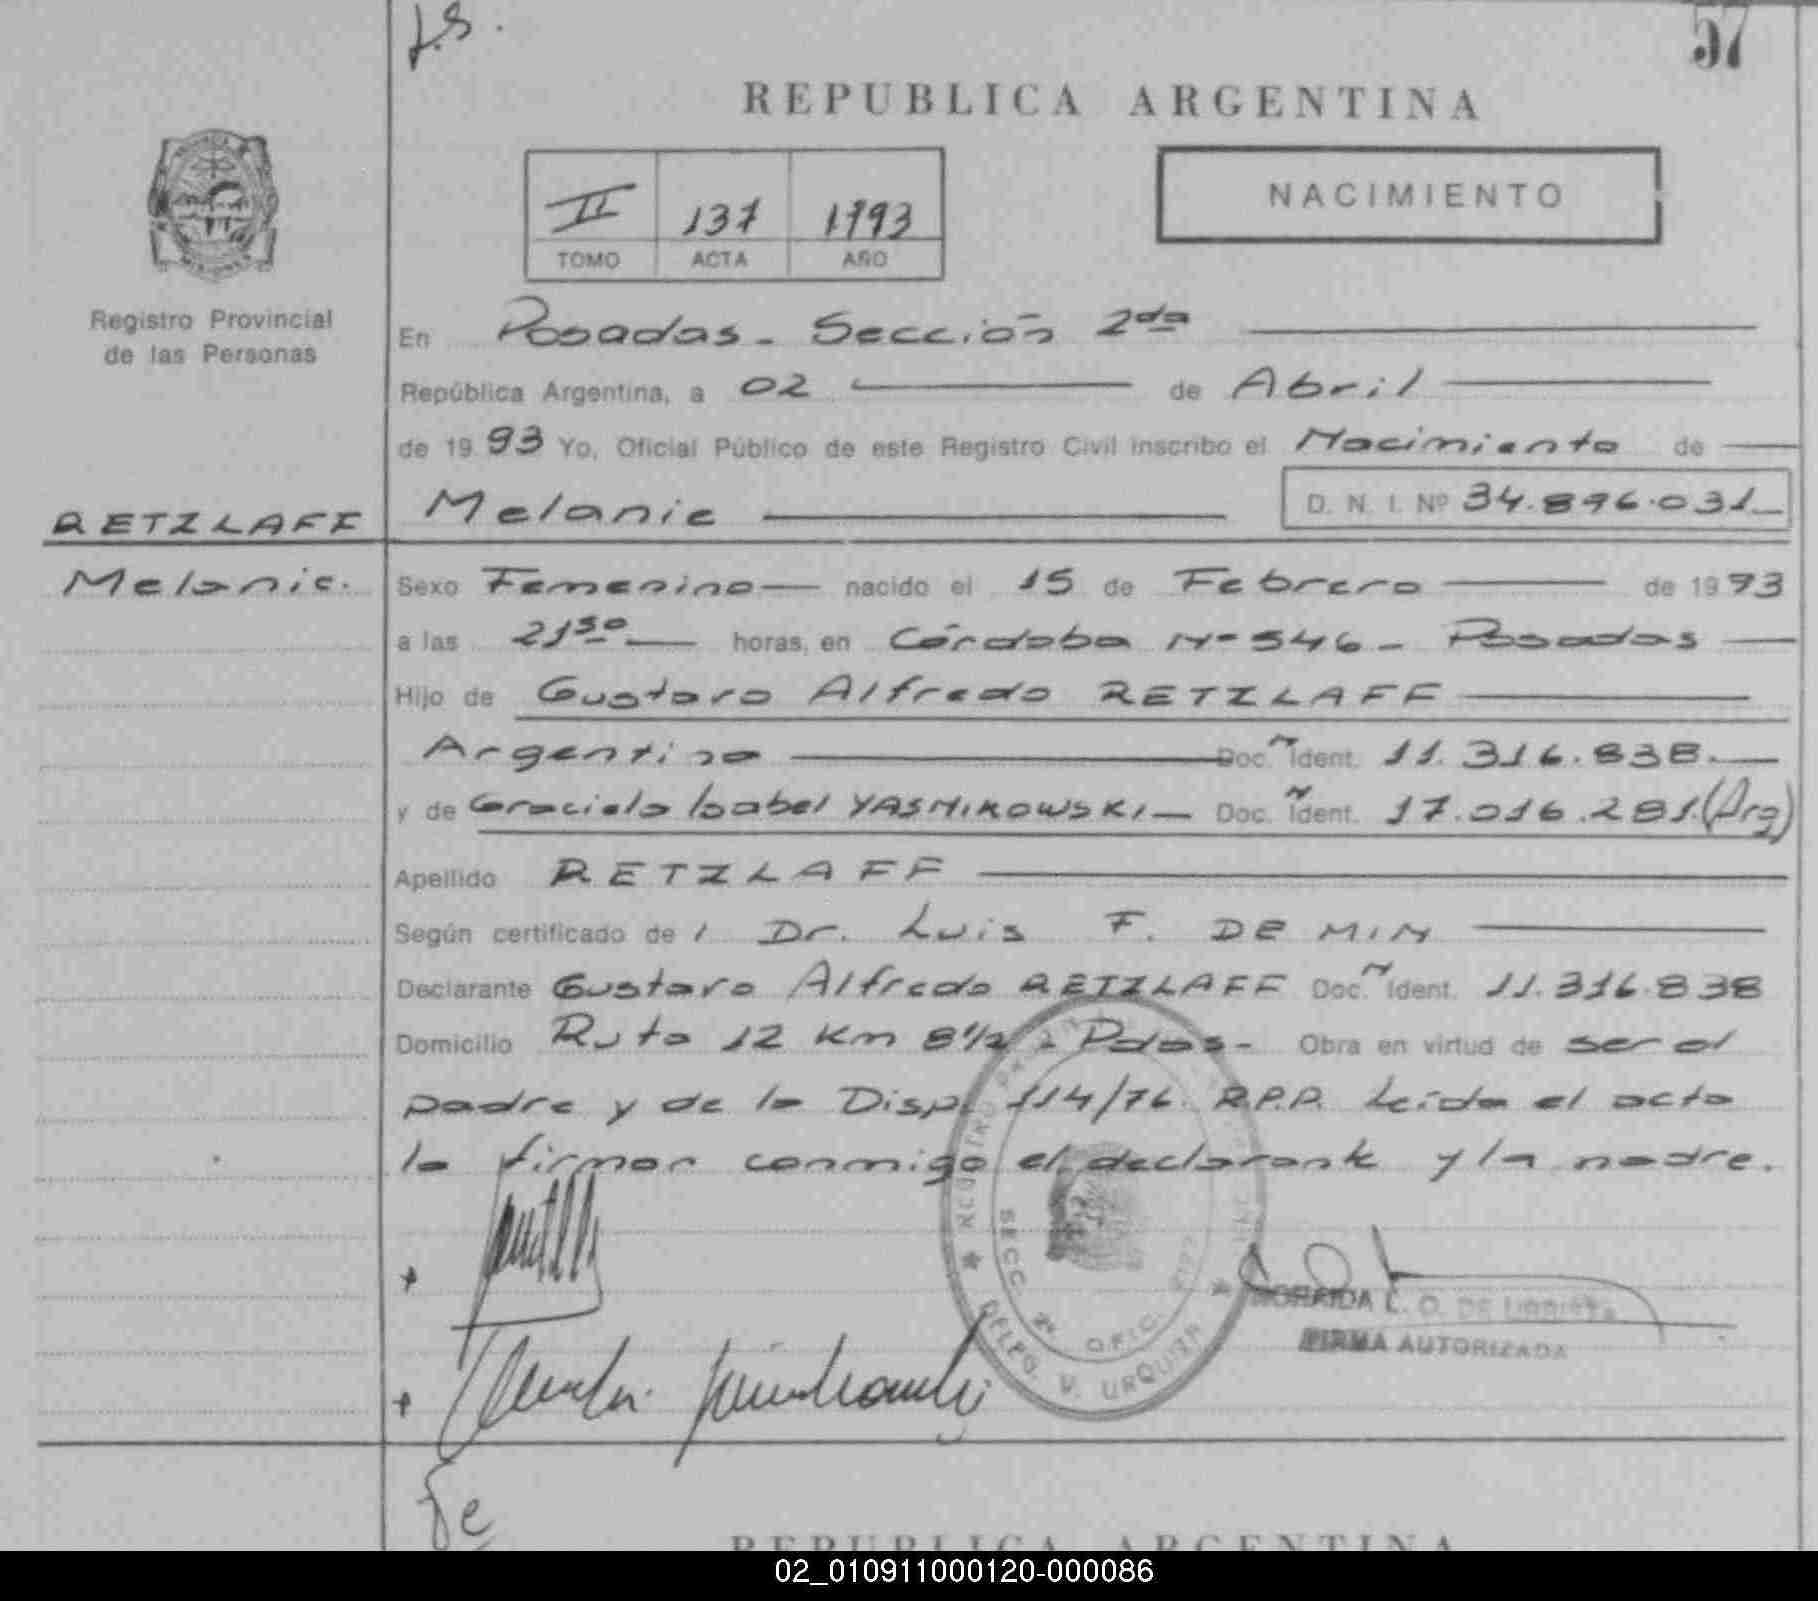 f.s.
57
REPUBLICA ARGENTINA
II 137 1993
TOMO ACTA AÑO
NACIMIENTO
Registro Provincial
de las Personas
En Posadas - Sección 2da
República Argentina, a 02 de Abril
de 1993 Yo, Oficial Público de este Registro Civil inscribo el Nacimiento de
RETZLAFF Melanie D. N. I. Nº 34.896.031
Melanie. Sexo Femenino nacido el 15 de Febrero de 1993
a las 21 30 horas, en Córdoba Nº 546 - Posadas
Hijo de Gustavo Alfredo RETZLAFF
Argentino Doc. Ident. 11.316.838.
y de Graciela Isabel YASNIKOWSKI Doc. Ident. 17.016.281. (Arg)
Apellido RETZLAFF
Según certificado de / Dr. Luis F. DE MIN
Declarante Gustavo Alfredo RETZLAFF Doc. Ident. 11.316.838
Domicilio Ruta 12 Km 8 1/2 - Pdas - Obra en virtud de ser el
padre y de la Disp. 114/76. R.P.P. Leída el acta
la firman conmigo el declarante y la madre.
SECC. 2ª OFIC.
DELEG. V. URQUIZA
L. O. DE
FIRMA AUTORIZADA
REPUBLICA ARGENTINA
02_010911000120-000086